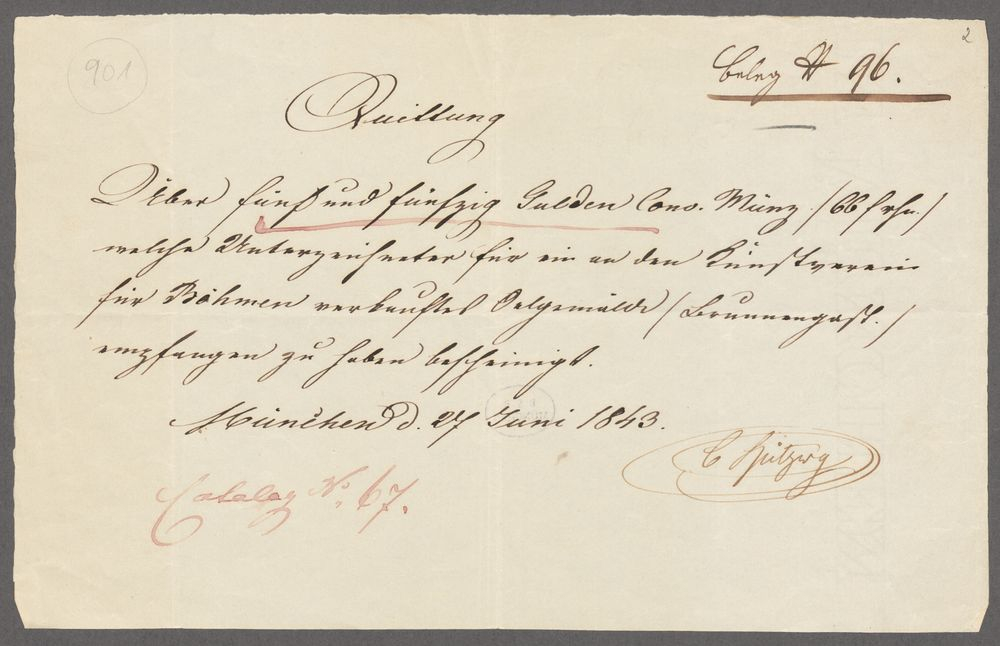 2
901
Beleg # 96.
Quittung
Über fünf und fünfzig Gulden Conv. Münz. / 66 f rhn. /
welche Unterzeichneter für ein an den Kunstverein
für Böhmen verkauftes Oelgemälde / Brunnengast. /
empfangen zu haben bescheinigt.
München d. 27 Juni 1843.
C Spitzweg
Catalog No. 67.